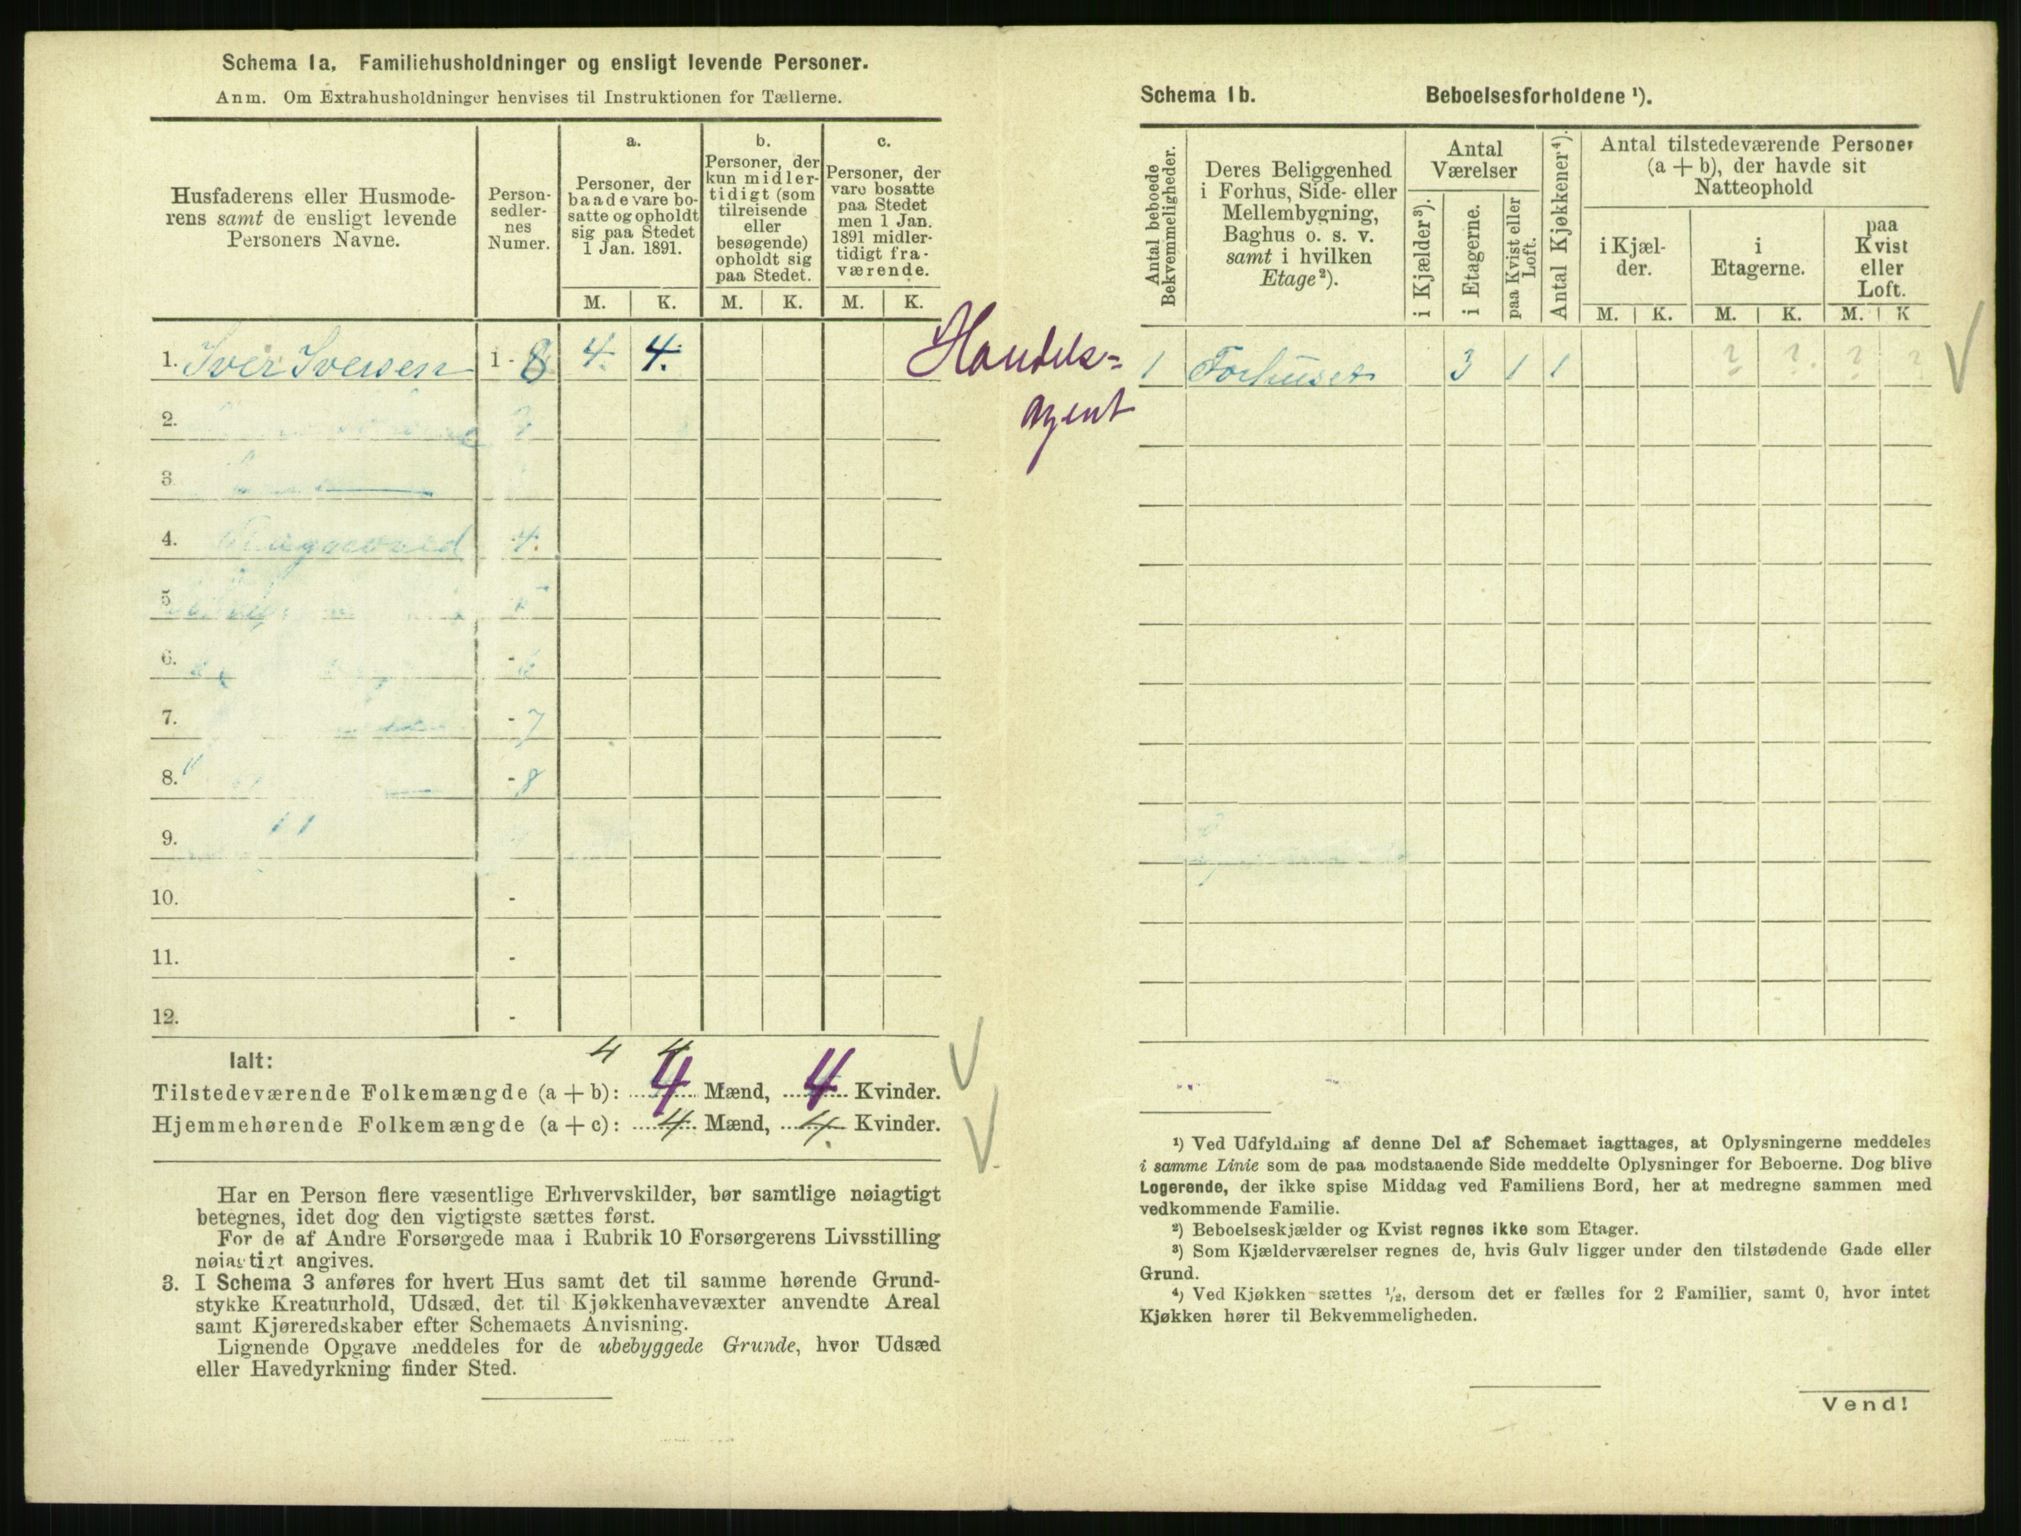 Schema 1a. Familiehusholdninger og ensligt levende Personer.
Anm. Om Extrahusholdninger henvises til Instruktionen for Tællerne.
Husfaderens eller Husmode-
rens samt de ensligt levende
Personers Navne.
Person-
sedler-
nes
Numer.
a.
Personer, der
baade vare bo-
satte og opholdt
sig paa Stedet
1 Jan. 1891.
b.
Personer, der
kun midler-
tidigt (som
tilreisende
eller
besøgende)
opholdt sig
paa Stedet.
c.
Personer, der
vare bosatte
paa Stedet
men 1 Jan.
1891 midler-
tidigt fra-
værende.
M. K. M. K. M. K.
1. Iver Iversen 1 - 8 4. 4.
Handels=
agent
2.
3
4. 4.
5
6. -
7. - 7
8. - 8
9.
10. -
11. -
12. -
Ialt: 4 4
Tilstedeværende Folkemængde (a + b): 4 Mænd, 4 Kvinder.
Hjemmehørende Folkemængde (a + c): 4 Mænd, 4. Kvinder.
Har en Person flere væsentlige Erhvervskilder, bør samtlige nøiagtigt
betegnes, idet dog den vigtigste sættes først.
For de af Andre Forsørgede maa i Rubrik 10 Forsørgerens Livsstilling
nøiagtigt angives.
3. I Schema 3 anføres for hvert Hus samt det til samme hørende Grund-
stykke Kreaturhold, Udsæd, det til Kjøkkenhavevæxter anvendte Areal
samt Kjøreredskaber efter Schemaets Anvisning.
Lignende Opgave meddeles for de ubebyggede Grunde, hvor Udsæd
eller Havedyrkning finder Sted.
Schema 1b. Beboelsesforholdene ¹).
Antal beboede
Bekvemmeligheder.
Deres Beliggenhed
i Forhus, Side- eller
Mellembygning,
Baghus o. s. v.
samt i hvilken
Etage²).
Antal
Værelser
i Kjælder³).
i Etagerne.
paa Kvist eller
Loft.
Antal Kjøkkener⁴).
Antal tilstedeværende Personer
(a + b), der havde sit
Natteophold
i Kjæl-
der.
i
Etagerne.
paa
Kvist
eller
Loft.
M. K. M. K. M. K
1 Forhuset 3 1 1 ? ? ? ?
¹) Ved Udfyldning af denne Del af Schemaet iagttages, at Oplysningerne meddeles
i samme Linie som de paa modstaaende Side meddelte Oplysninger for Beboerne. Dog blive
Logerende, der ikke spise Middag ved Familiens Bord, her at medregne sammen med
vedkommende Familie.
²) Beboelseskjælder og Kvist regnes ikke som Etager.
³) Som Kjælderværelser regnes de, hvis Gulv ligger under den tilstødende Gade eller
Grund.
⁴) Ved Kjøkken sættes ½, dersom det er fælles for 2 Familier, samt 0, hvor intet
Kjøkken hører til Bekvemmeligheden.
Vend!